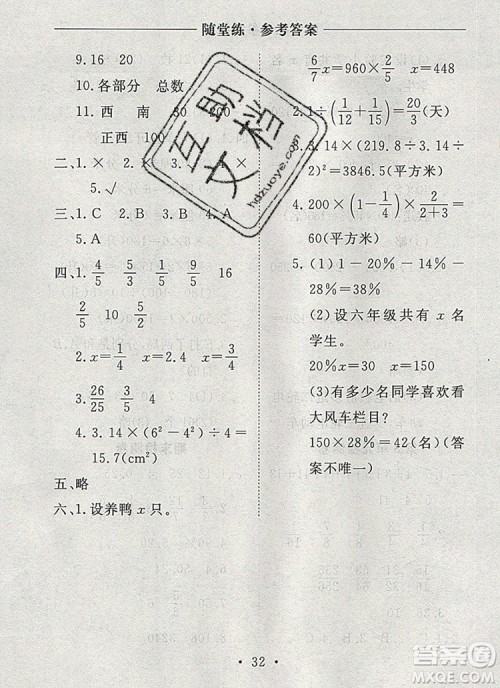 随堂练·参考答案
9.16 20
10.各部分 总数
11.西 南 30 200
正西 100
二、1.× 2.× 3.× 4.×
5.√
三、1.C 2.B 3.B 4.A
5.A
四、1. 4/5 5/4 9/5 16
2/5 10 5/2
2.x=1/4 x=2.4 x=3/4
3. 26/25 5/3 4
4.3.14×(6²-4²)÷4=
15.7(cm²)
五、略
六、1.设养鸭 x 只。
6/7 x=960×2/5 x=448
2.1÷(1/12+1/10)=20/3(天)
3.3.14×(219.8÷3.14÷
2)²=3846.5(平方米)
4.200×(1-1/4)×2/(2+3)=
60(平方米)
5.(1)1-20%-14%-
28%=38%
(2)设六年级共有 x 名
学生。
20%x=30 x=150
(3)有多少名同学喜欢看
大风车栏目?
150×28%=42(名)(答
案不唯一)
互助文档
hdzuoye.com
·32·
作业帮